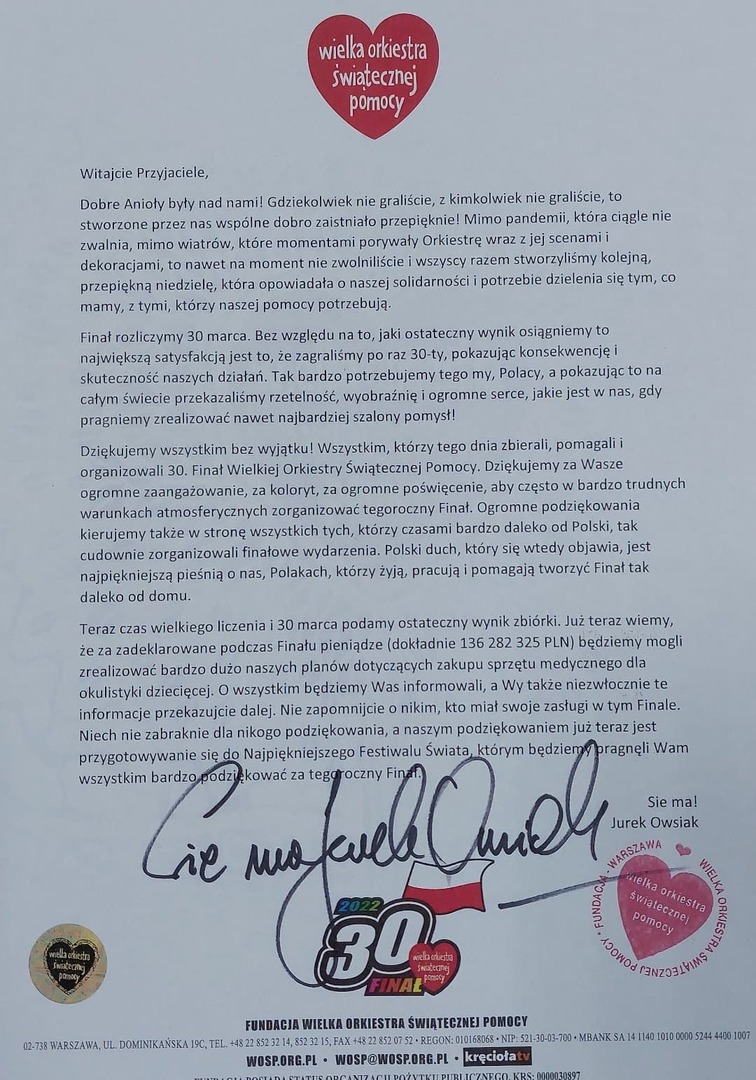 wielka orkiestra
świątecznej
pomocy
Witajcie Przyjaciele,
Dobre Anioły były nad nami! Gdziekolwiek nie graliście, z kimkolwiek nie graliście, to
stworzone przez nas wspólne dobro zaistniało przepięknie! Mimo pandemii, która ciągle nie
zwalnia, mimo wiatrów, które momentami porywały Orkiestrę wraz z jej scenami i
dekoracjami, to nawet na moment nie zwolniliście i wszyscy razem stworzyliśmy kolejną,
przepiękną niedzielę, która opowiadała o naszej solidarności i potrzebie dzielenia się tym, co
mamy, z tymi, którzy naszej pomocy potrzebują.
Finał rozliczymy 30 marca. Bez względu na to, jaki ostateczny wynik osiągniemy to
największą satysfakcją jest to, że zagraliśmy po raz 30-ty, pokazując konsekwencję i
skuteczność naszych działań. Tak bardzo potrzebujemy tego my, Polacy, a pokazując to na
całym świecie przekazaliśmy rzetelność, wyobraźnię i ogromne serce, jakie jest w nas, gdy
pragniemy zrealizować nawet najbardziej szalony pomysł!
Dziękujemy wszystkim bez wyjątku! Wszystkim, którzy tego dnia zbierali, pomagali i
organizowali 30. Finał Wielkiej Orkiestry Świątecznej Pomocy. Dziękujemy za Wasze
ogromne zaangażowanie, za koloryt, za ogromne poświęcenie, aby często w bardzo trudnych
warunkach atmosferycznych zorganizować tegoroczny Finał. Ogromne podziękowania
kierujemy także w stronę wszystkich tych, którzy czasami bardzo daleko od Polski, tak
cudownie zorganizowali finałowe wydarzenia. Polski duch, który się wtedy objawia, jest
najpiękniejszą pieśnią o nas, Polakach, którzy żyją, pracują i pomagają tworzyć Finał tak
daleko od domu.
Teraz czas wielkiego liczenia i 30 marca podamy ostateczny wynik zbiórki. Już teraz wiemy,
że za zadeklarowane podczas Finału pieniądze (dokładnie 136 282 325 PLN) będziemy mogli
zrealizować bardzo dużo naszych planów dotyczących zakupu sprzętu medycznego dla
okulistyki dziecięcej. O wszystkim będziemy Was informowali, a Wy także niezwłocznie te
informacje przekazujcie dalej. Nie zapomnijcie o nikim, kto miał swoje zasługi w tym Finale.
Niech nie zabraknie dla nikogo podziękowania, a naszym podziękowaniem już teraz jest
przygotowywanie się do Najpiękniejszego Festiwalu Świata, którym będziemy pragnęli Wam
wszystkim bardzo podziękować za tegoroczny Finał.
Sie ma!
Jurek Owsiak
Sie ma Jurek Owsiak
2022
30
FINAŁ
wielka orkiestra
świątecznej
pomocy
wielka orkiestra
świątecznej
pomocy
FUNDACJA WIELKA ORKIESTRA ŚWIĄTECZNEJ POMOCY • WARSZAWA
wielka orkiestra
świątecznej
pomocy
FUNDACJA WIELKA ORKIESTRA ŚWIĄTECZNEJ POMOCY
02-738 WARSZAWA, UL. DOMINIKAŃSKA 19C, TEL. +48 22 852 32 14, 852 32 15, FAX +48 22 852 07 52 • REGON: 010168068 • NIP: 521-30-03-700 • MBANK SA 14 1140 1010 0000 5244 4400 1007
WOSP.ORG.PL • WOSP@WOSP.ORG.PL • kręciołatv
FUNDACJA POSIADA STATUS ORGANIZACJI POŻYTKU PUBLICZNEGO, KRS: 0000030897